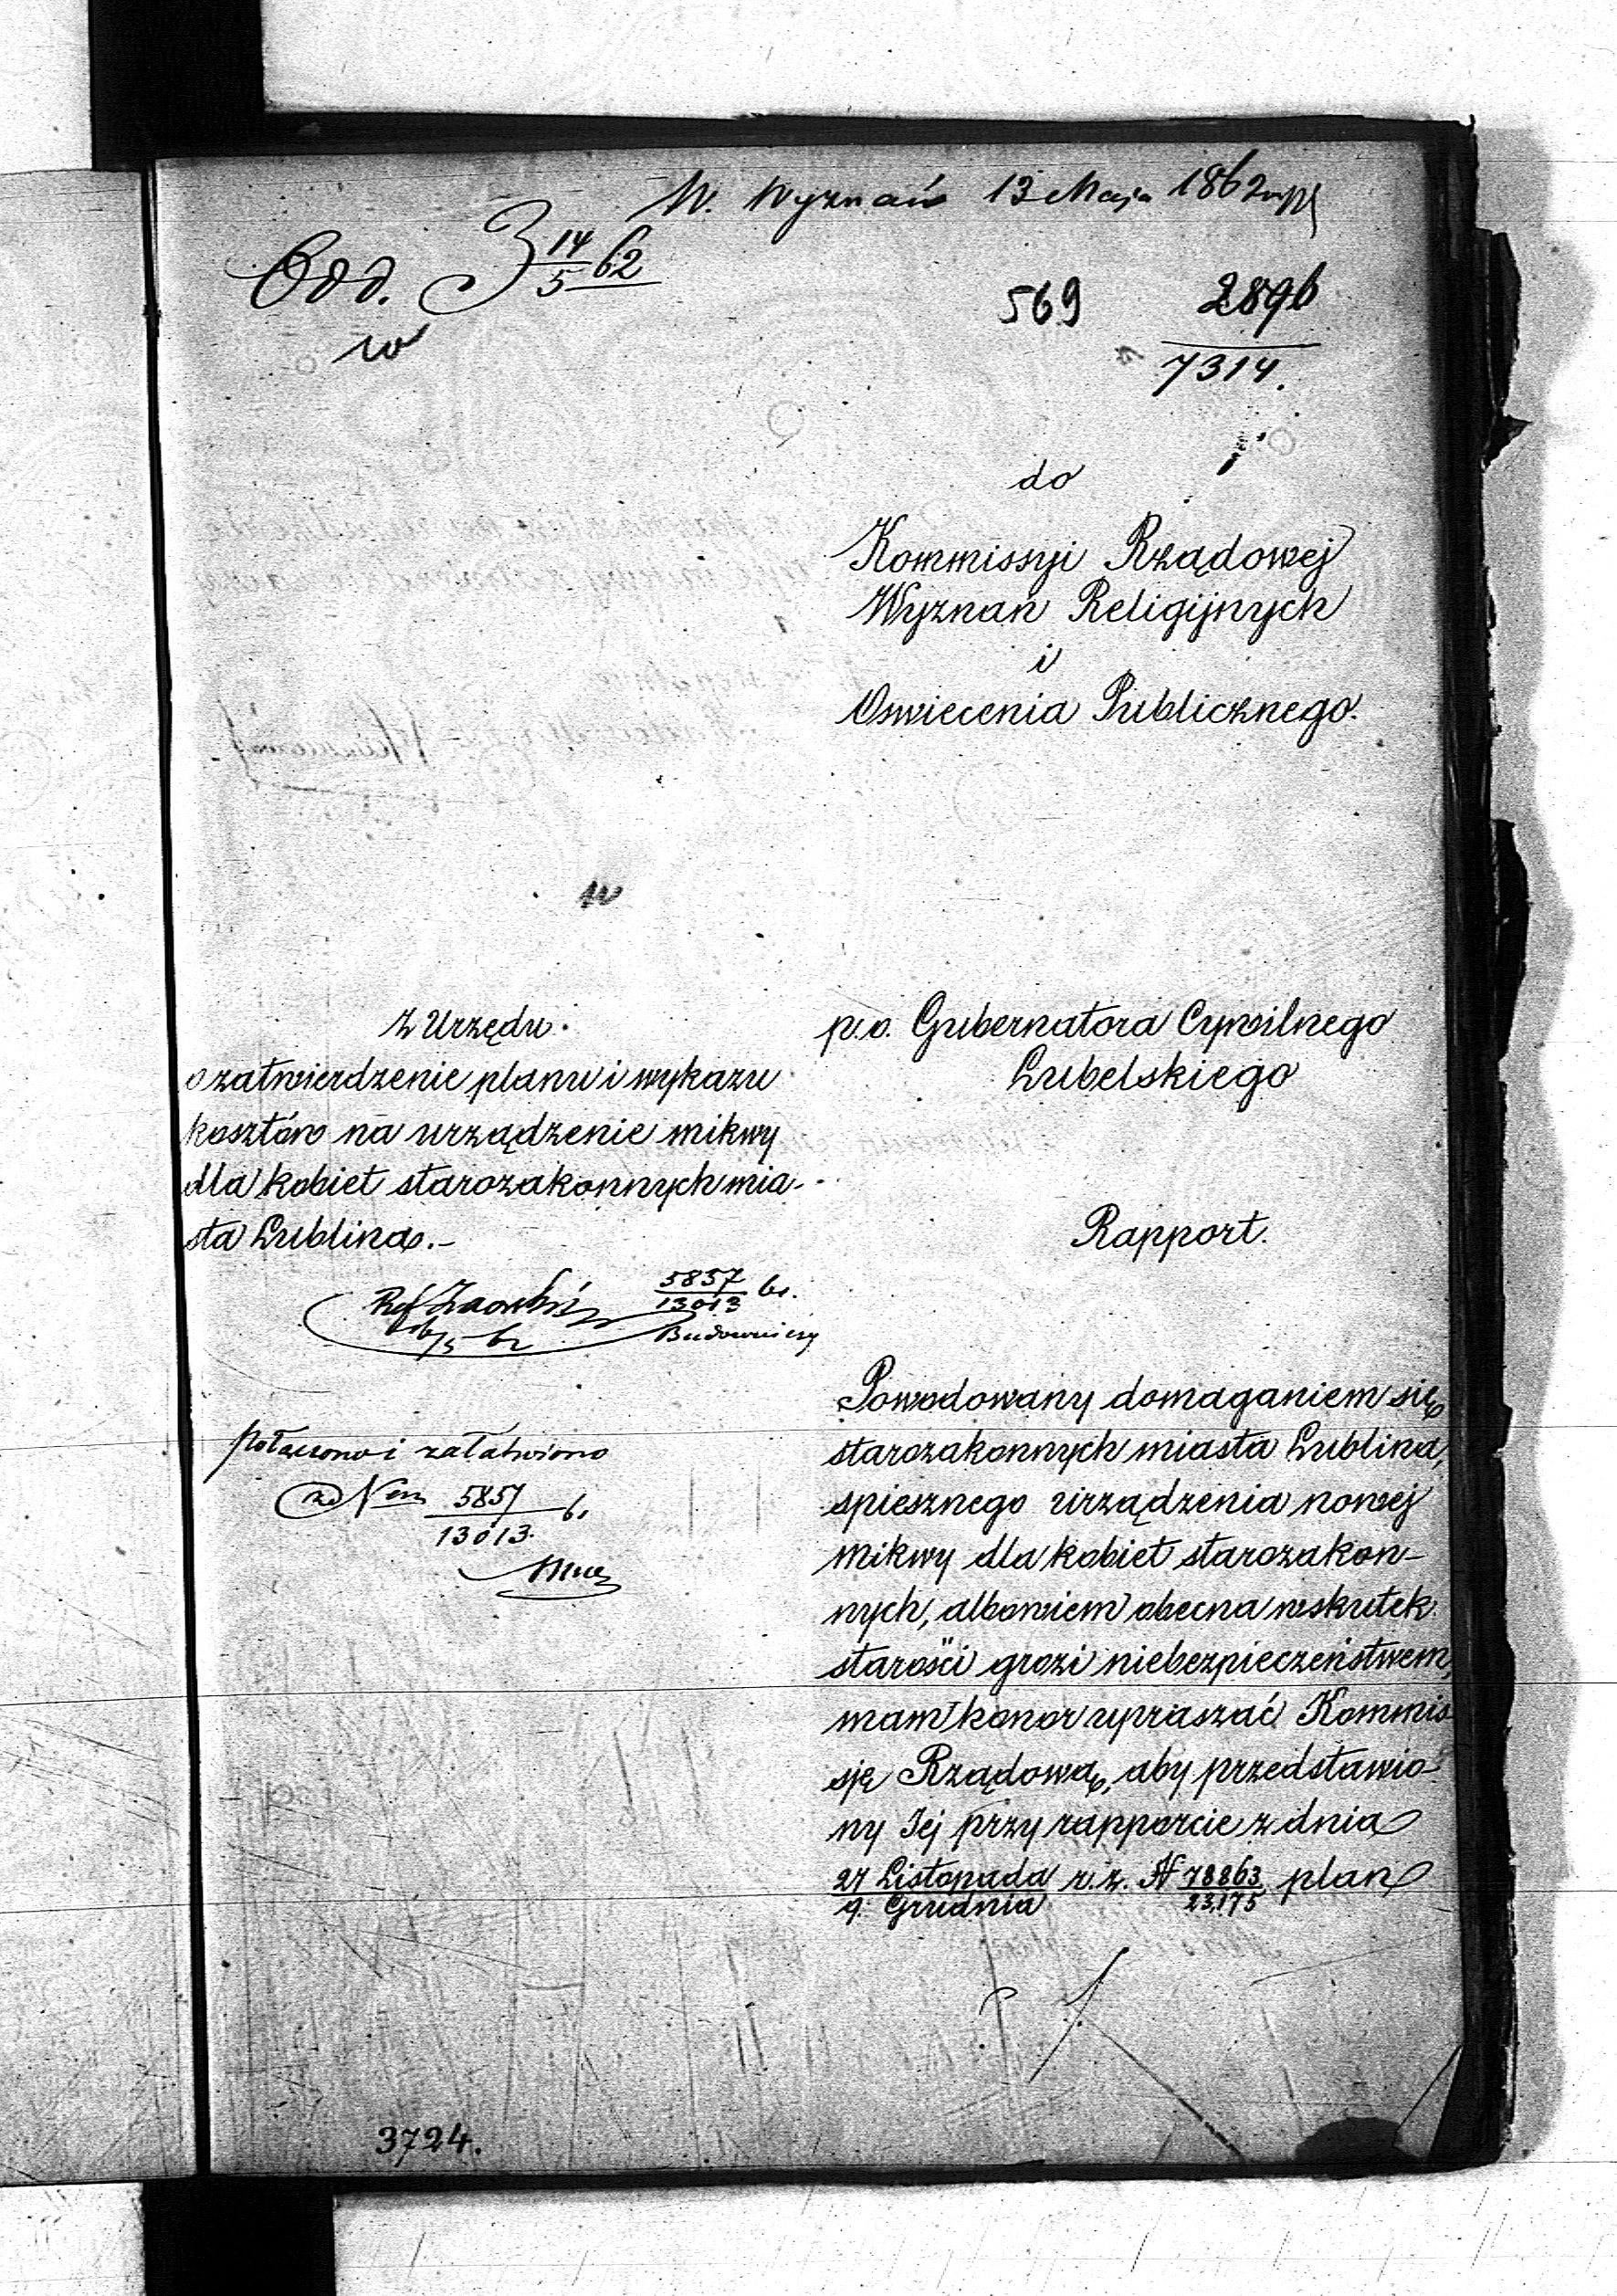 W. Wyznań 13 Maja 1862
Odd. 3 14/5 62
w
569
2896
7314.
do
Kommissyi Rządowej
Wyznań Religijnych
i
Oswiecenia Publicznego.
z Urzędu.
o zatwierdzenie planu i wykazu
kosztów na urządzenie mikwy
dla kobiet starozakonnych mia-
sta Lublina.-
5857/13013 61.
Budowniczy
połączono i załatwiono
5857/13013. 61
p.o. Gubernatora Cywilnego
Lubelskiego
Rapport.
Powodowany domaganiem się
starozakonnych miasta Lublina,
spiesznego urządzenia nowej
mikwy dla kobiet starozakon-
nych, albowiem obecna wskutek
starości grozi niebezpieczeństwem,
mam honor upraszać Kommis
sję Rządową, aby przedstawio-
ny Jej przy rapporcie z dnia
27 Listopada/9. Grudnia r.z. N 78863/23,175 plan
3724.